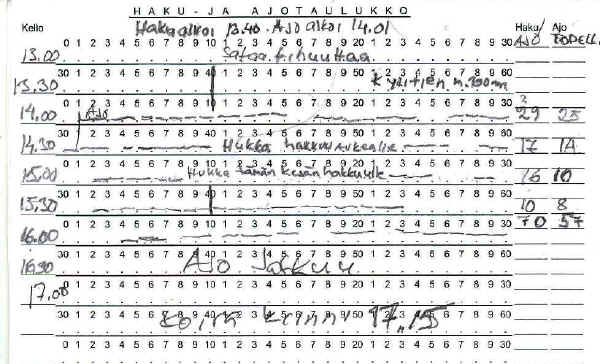 HAKU- JA AJOTAULUKKO
Kello Haku alkoi 13.40. Ajo alkoi 14.01 Haku/ Ajo
AJO TODELL.
13.00 0 1 2 3 4 5 6 7 8 9 10 1 2 3 4 5 6 7 8 9 20 1 2 3 4 5 6 7 8 9 30
Sataa tihuuttaa.
13.30 30 1 2 3 4 5 6 7 8 9 40 1 2 3 4 5 6 7 8 9 50 1 2 3 4 5 6 7 8 9 60
14.00 0 1 2 3 4 5 6 7 8 9 10 1 2 3 4 5 6 7 8 9 20 1 2 3 4 5 6 7 8 9 30
Ajo 29 25
14.30 30 1 2 3 4 5 6 7 8 9 40 1 2 3 4 5 6 7 8 9 50 1 2 3 4 5 6 7 8 9 60
Hukka hakkuuaukealle 17 14
15.00 0 1 2 3 4 5 6 7 8 9 10 1 2 3 4 5 6 7 8 9 20 1 2 3 4 5 6 7 8 9 30
Hukka tämän kesän hakkuulle 16 10
15.30 30 1 2 3 4 5 6 7 8 9 40 1 2 3 4 5 6 7 8 9 50 1 2 3 4 5 6 7 8 9 60
10 8
16.00 0 1 2 3 4 5 6 7 8 9 10 1 2 3 4 5 6 7 8 9 20 1 2 3 4 5 6 7 8 9 30
70 57
16.30 30 1 2 3 4 5 6 7 8 9 40 1 2 3 4 5 6 7 8 9 50 1 2 3 4 5 6 7 8 9 60
Ajo Jatkuu
17.00 0 1 2 3 4 5 6 7 8 9 10 1 2 3 4 5 6 7 8 9 20 1 2 3 4 5 6 7 8 9 30
30 1 2 3 4 5 6 7 8 9 40 1 2 3 4 5 6 7 8 9 50 1 2 3 4 5 6 7 8 9 60
Koira kiinni 17.15
0 1 2 3 4 5 6 7 8 9 10 1 2 3 4 5 6 7 8 9 20 1 2 3 4 5 6 7 8 9 30